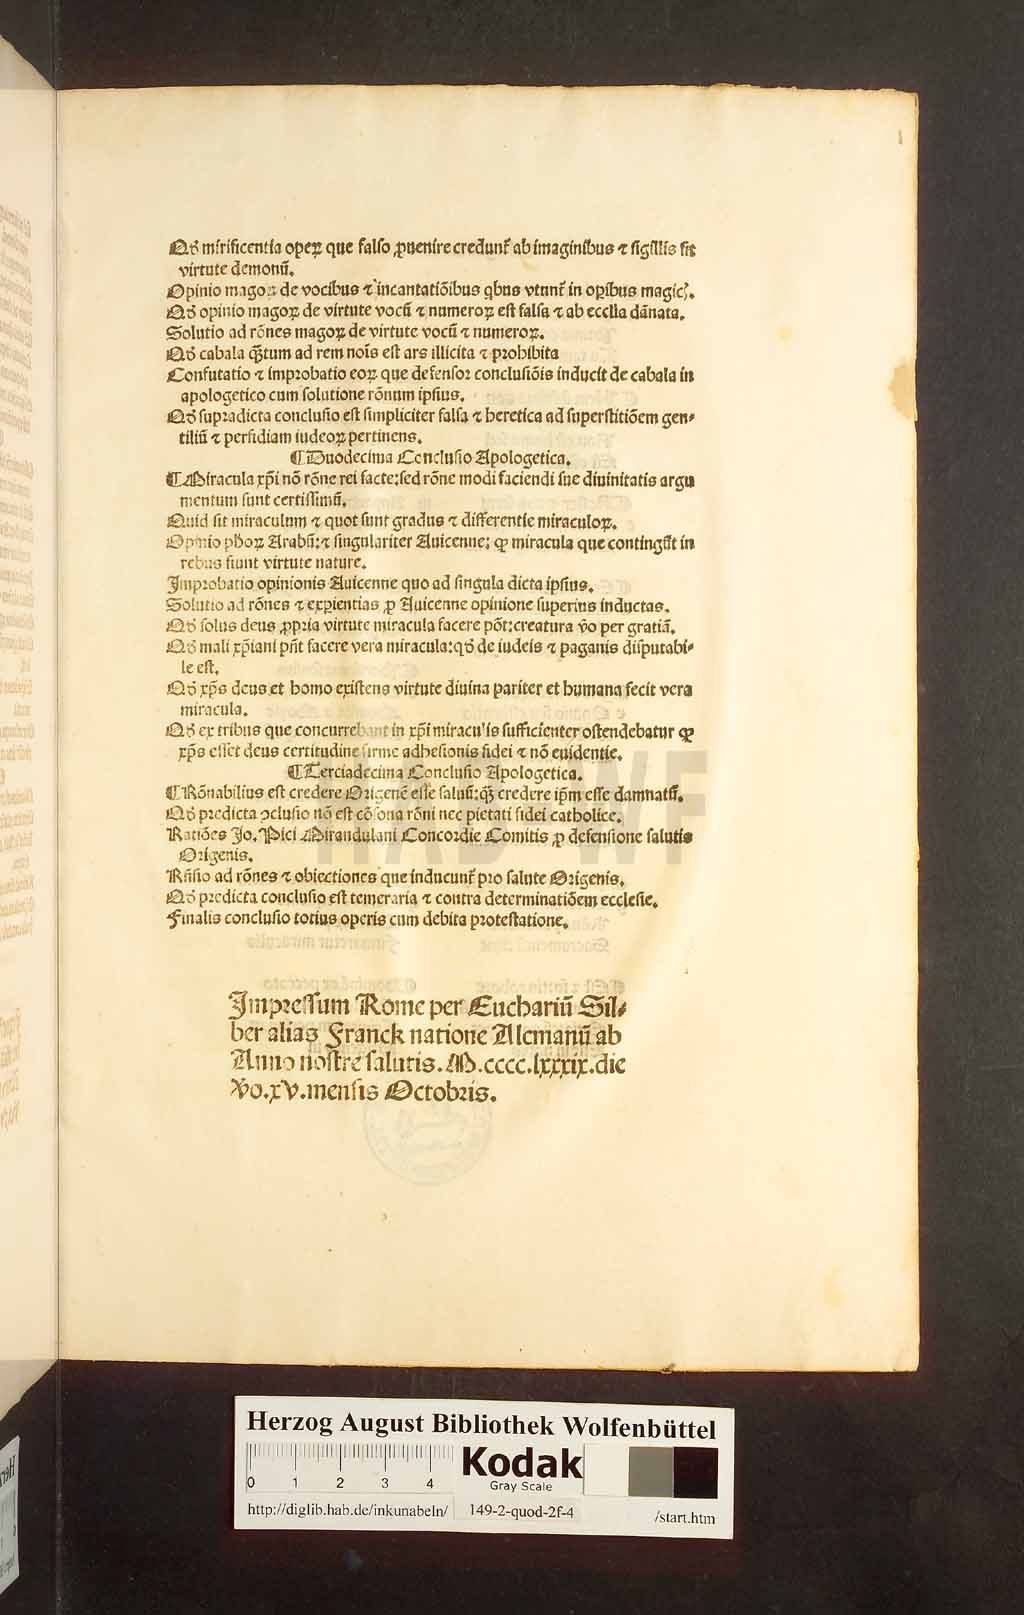 Qđ mirificentia opeꝝ que falso ꝓuenire credunt᷑ ab imaginibus ⁊ sigillis fit
virtute demonū.
Opinio magoꝝ de vocibus ⁊ incantatiōibus qbus vtunt᷑ in opibus magicꝭ.
Qđ opinio magoꝝ de virtute vocū ⁊ numeroꝝ est falsa ⁊ ab ecclia dānata.
Solutio ad rōnes magoꝝ de virtute vocū ⁊ numeroꝝ.
Qđ cabala q̄tum ad rem nois̄ est ars illicita ⁊ prohibita
Confutatio ⁊ improbatio eoꝝ que defensor conclusiōis inducit de cabala in
apologetico cum solutione rōnum ipsius.
Qđ supradicta conclusio est simpliciter falsa ⁊ heretica ad superstitiōem gen⸗
tiliū ⁊ perfidiam iudeoꝝ pertinens.
¶Duodecima Conclusio Apologetica.
¶Miracula xp̄i nō rōne rei facte:sed rōne modi faciendi sue diuinitatis argu
mentum sunt certissimū.
Quid sit miraculum ⁊ quot sunt gradus ⁊ differentie miraculoꝝ.
Opinio ph̄oꝝ Arabū:⁊ singulariter Auicenne: ꝙ miracula que contingūt in
rebus fiunt virtute nature.
Improbatio opinionis Auicenne quo ad singula dicta ipsius.
Solutio ad rōnes ⁊ exꝑientias ꝓ Auicenne opinione superius inductas.
Qđ solus deus ꝓpria virtute miracula facere pōt:creatura v̄o per gratiā.
Qđ mali xp̄iani pn̄t facere vera miracula:qđ de iudeis ⁊ paganis disputabi⸗
le est.
Qđ xp̄s deus et homo existens virtute diuina pariter et humana fecit vera
miracula.
Qđ ex tribus que concurrebant in xp̄i miraculis sufficienter ostendebatur ꝙ
xp̄s esset deus certitudine firme adhesionis fidei ⁊ nō euidentie.
¶Terciadecima Conclusio Apologetica.
¶Rōnabilius est credere Origenē esse saluū:q̄ꝫ credere ip̄m esse damnatū.
Qđ predicta ꝯclusio nō est cōsona rōni nec pietati fidei catholice.
Ratiōes Jo. Pici Mirandulani Concordie Comitis ꝓ defensione salutis
Origenis.
Rn̄sio ad rōnes ⁊ obiectiones que inducunt᷑ pro salute Origenis.
Qđ predicta conclusio est temeraria ⁊ contra determinatiōem ecclesie.
Finalis conclusio totius operis cum debita protestatione.
Impressum Rome per Euchariū Sil⸗
ber alias Franck natione Alemanū ab
Anno nostre salutis. M.cccc.lxxxix.die
v̄o.xv.mensis Octobris.
HAB-WF
Herzog August Bibliothek Wolfenbüttel
0 1 2 3 4
Kodak
Gray Scale
http://diglib.hab.de/inkunabeln/ 149-2-quod-2f-4 /start.htm